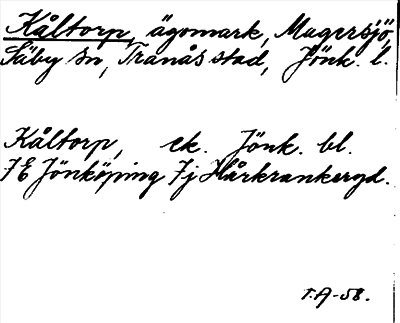 Kåltorp, ägomark, Magersjö,
Säby sn, Tranås stad, Jönk. l.
Kåltorp, ek. Jönk. bl.
7E Jönköping 7j Hårkrankeryd.
T.A-58.